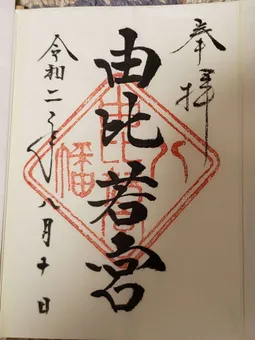 奉拝
由比若宮
令和二年八月十日